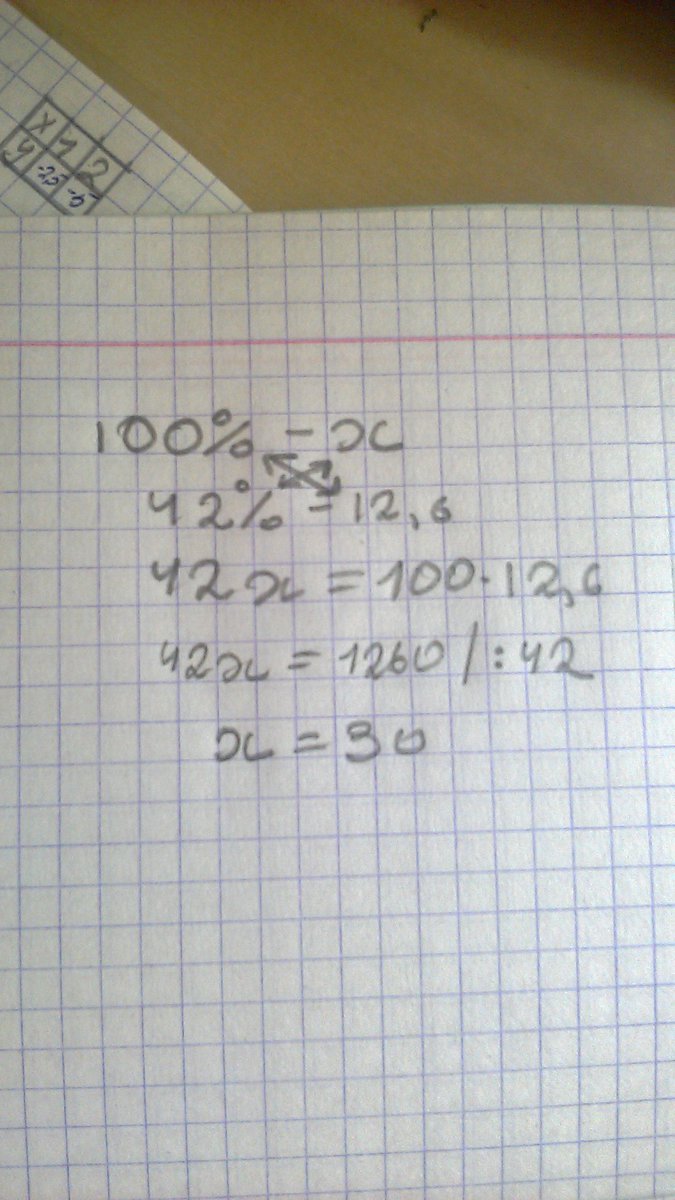 x 4 2
y -25 -5
100% - x
42% - 12,6
42x = 100·12,6
42x = 1260 / : 42
x = 30